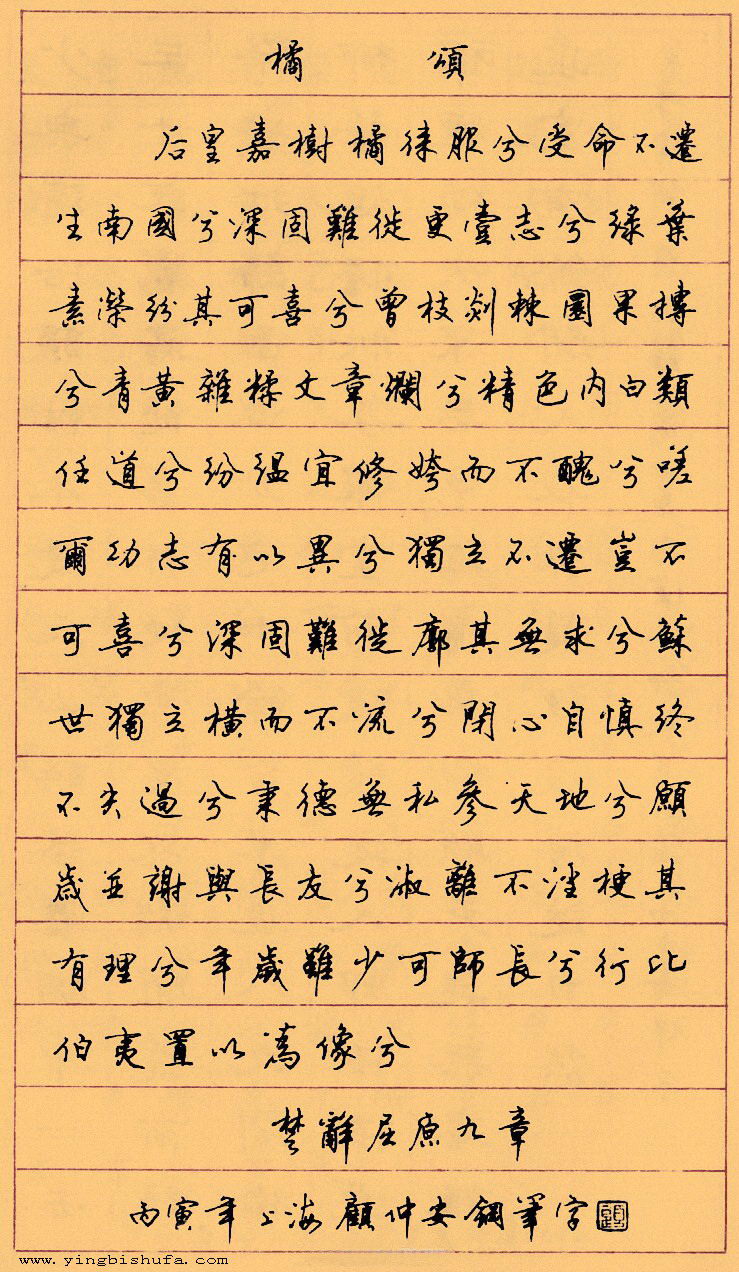 橘頌
后皇嘉樹橘徠服兮受命不遷
生南國兮深固難徙更壹志兮綠葉
素榮紛其可喜兮曾枝剡棘圓果摶
兮青黃雜糅文章爛兮精色內白類
任道兮紛縕宜修姱而不醜兮嗟
爾幼志有以異兮獨立不遷豈不
可喜兮深固難徙廓其無求兮蘇
世獨立橫而不流兮閉心自慎終
不失過兮秉德無私參天地兮願
歲並謝與長友兮淑離不淫梗其
有理兮年歲雖少可師長兮行比
伯夷置以為像兮
楚辭屈原九章
丙寅年上海顧仲安鋼筆字
www.yingbishufa.com